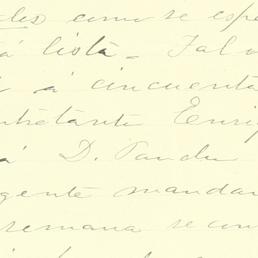 ales como se espe
á lista - Tal v
á cincuenta
ntretanto Enriq
á D.
gente mandar
semana se con